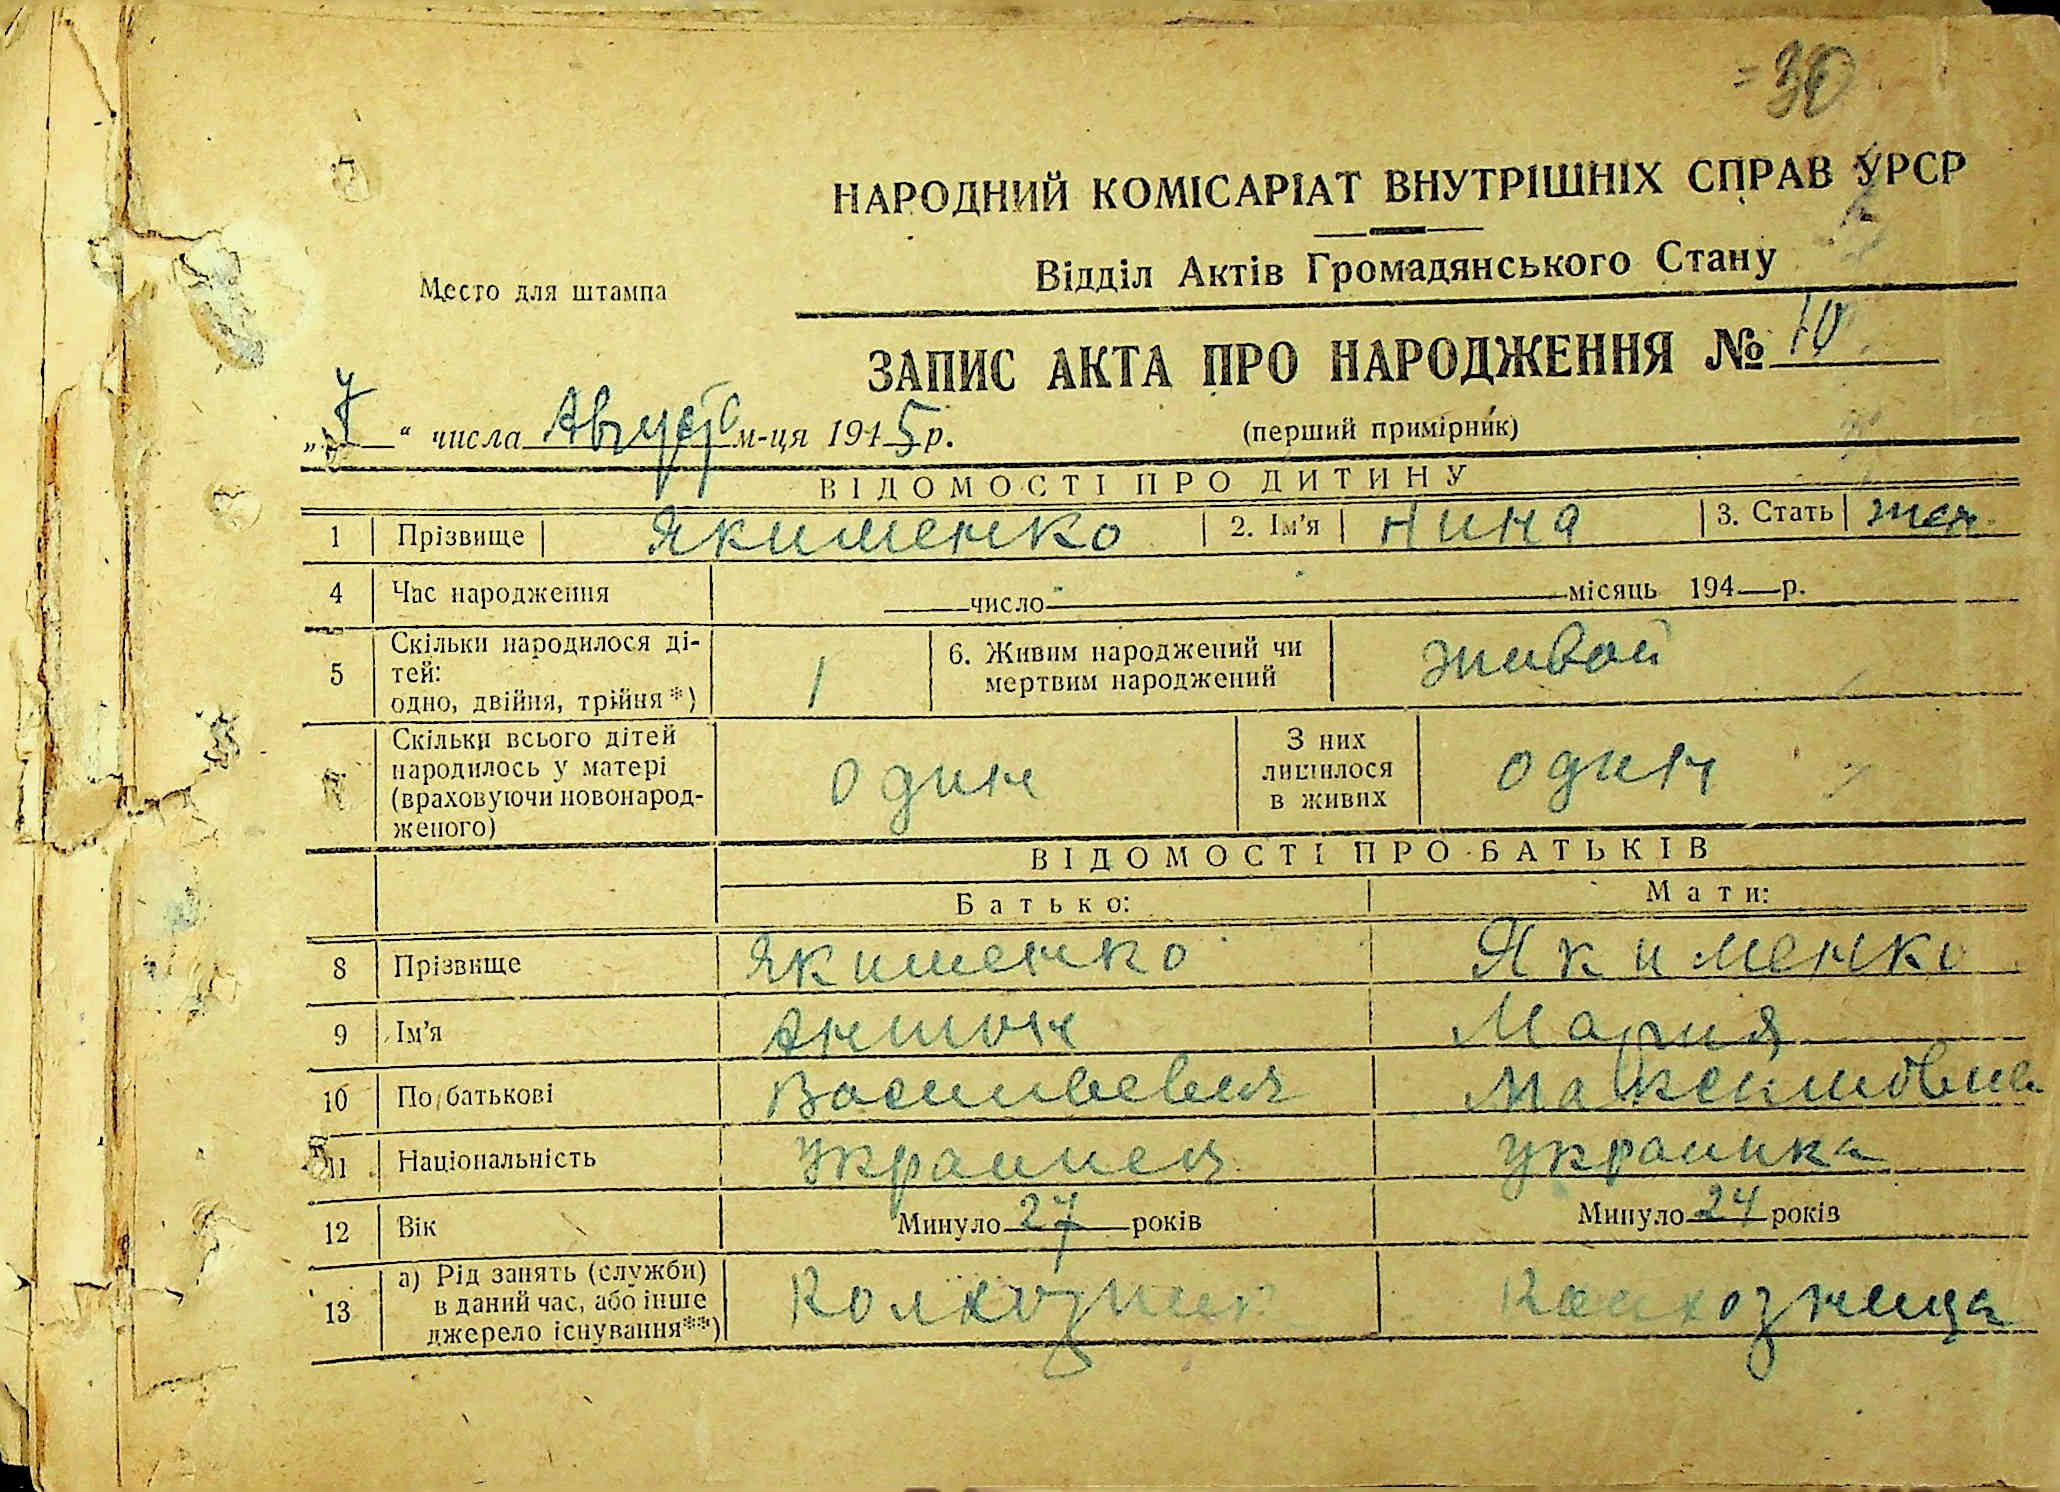 30
НАРОДНИЙ КОМІСАРІАТ ВНУТРІШНІХ СПРАВ УРСР
Відділ Актів Громадянського Стану
Место для штампа
ЗАПИС АКТА ПРО НАРОДЖЕННЯ № 10
„7“ числа Август м-ця 1945 р.
(перший примірник)
ВІДОМОСТІ ПРО ДИТИНУ
1 Прізвище Якименко 2. Ім’я Нина 3. Стать жен.
4 Час народження число місяць 194 р.
5 Скільки народилося ді-
тей:
одно, двійня, трійня *) 1 6. Живим народжений чи
мертвим народжений живой
Скільки всього дітей
народилось у матері
(враховуючи новонарод-
женого) один З них
лишилося
в живих один
ВІДОМОСТІ ПРО БАТЬКІВ
Батько: Мати:
8 Прізвище Якименко Якименко
9 Ім’я Антон Мария
10 По батькові Васильевич Максимовна
11 Національність Украинец украинка
12 Вік Минуло 27 років Минуло 24 років
13 а) Рід занять (служби)
в даний час, або інше
джерело існування**) Колхозник Колхозница